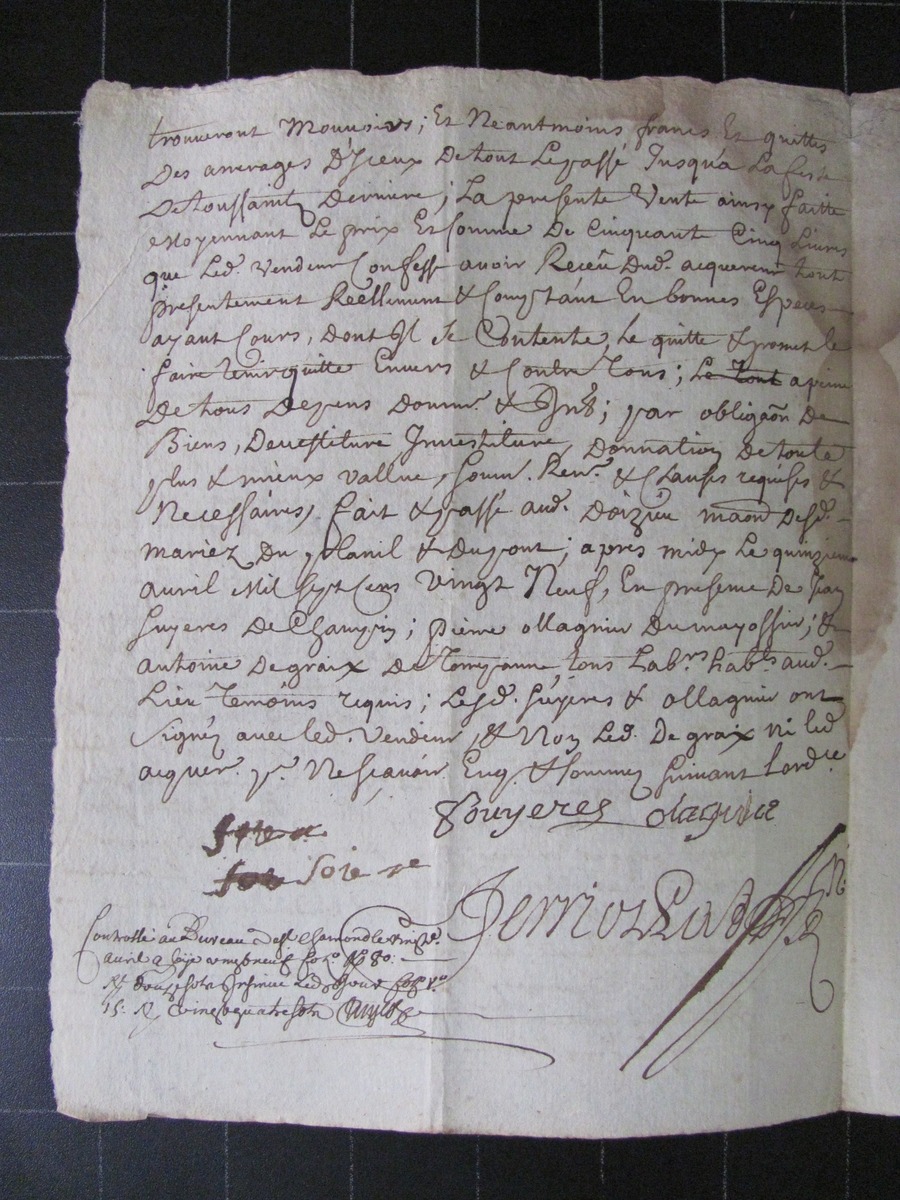 trouveront Mouvoirs; Et Neantmoins francs Et quittes
Des arrerages D'Iceux De tout Le passé Jusqu'a La feste
De toussaintz Derniere; La presente Vente ainsy faitte
Moyennant Le prix Et somme De Cinquante Cinq Livres
que Led. Vendeur Confesse avoir Reçeu Dud. acquereur tout
presentement Réellement & Comptant En bonnes Especes
ayant Cours, Dont Il Se Contente, Le quitte & promet le
faire tenir quitte Envers & Contre Tous; Le Tout a peine
De tous Depens Domm. & Int; par obligaon De
Biens, Devestiture Investiture, Donnation De toute
plus & mieux vallue, soum. Ren. & Clauses requises &
Necessaires, fait & passé aud. Doizieu maon Desd.
mariez Du planil & Dupont; apres midy Le quinzieme
avril Mil sept Cens Vingt Neuf, En presence De Jean
fuyeres De Champin; pierre ollagnier Du mayossin; &
antoine Degraix De Tompanne, tous Labrs habts aud.
Lieu Temoins requis; Lesd. fuyeres & ollagnier ont
Signéz avec led. Vendeur, & Non Led. Degraix ni led
acquer. pr. Ne sçavoir Enq. & Sommez suivant l'ordce
ffouyeres olagnier
Soie
Controllé au Bureau de st Chamond le
avril 
Rt douze sols Insinué Led Jour fo
15. Rt vingt quatre sols